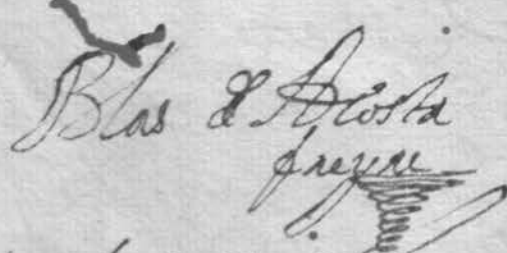 Blas de Acosta
freyre